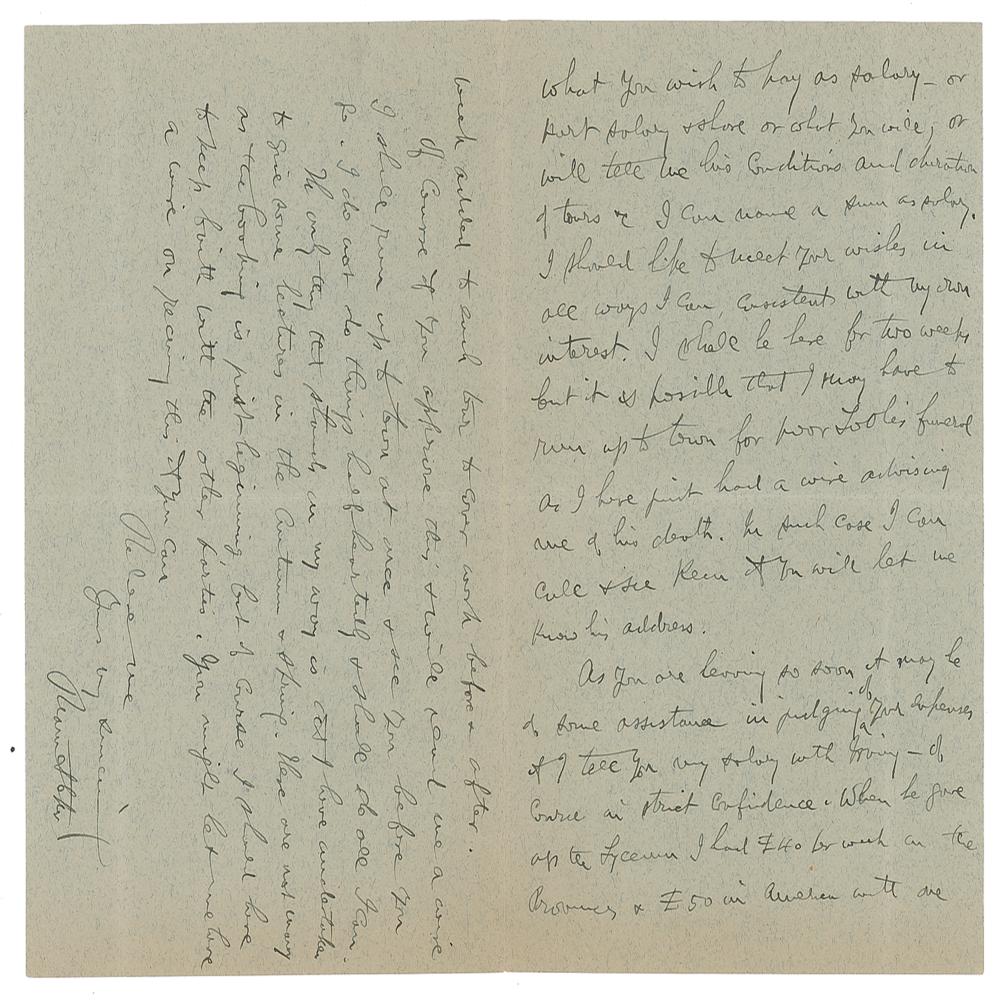 what you wish to pay as salary – or
part salary & share or what you will; or
will tell me his conditions and duration
of tours &c I can name a sum as salary.
I should like to meet your wishes in
all ways I can, consistent with my own
interest. I shall be here for two weeks
but it is possible that I may have to
run up to town for poor Toole's funeral
as I have just had a wire advising
me of his death. In such case I can
call & see Keen if you will let me
know his address.
As you are leaving so soon it may be
of some assistance in judging of your expenses
if I tell you my salary with Irving – of
course in strict confidence. When he gave
up the Lyceum I had £40 per week in the
Provinces & £50 in America with one
week added to each tour to cover work before & after.
Of course if you approve this & will send me a wire
I shall run up to town at once & see you before you
go. I do not do things half heartedly & shall do all I can.
The only thing that stands in my way is that I have undertaken
to give some lectures in the Autumn & Spring. These are not many
as the booking is just beginning, but of course I should have
to keep faith with the other parties. You might let me have
a wire on receiving this if you can
Believe me
Yours very sincerely
Bram Stoker